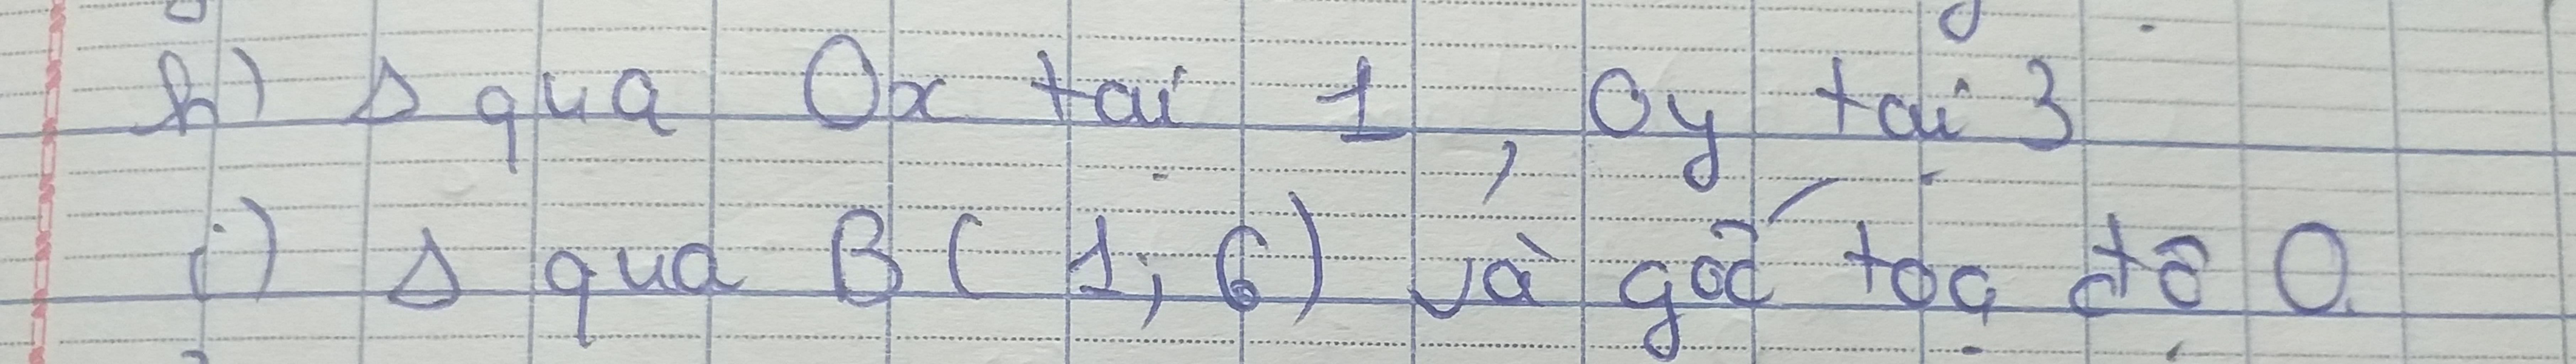 h) Δ qua Ox tại 1, Oy tại 3
i) Δ qua B(1; 6) và gốc tọa độ O.